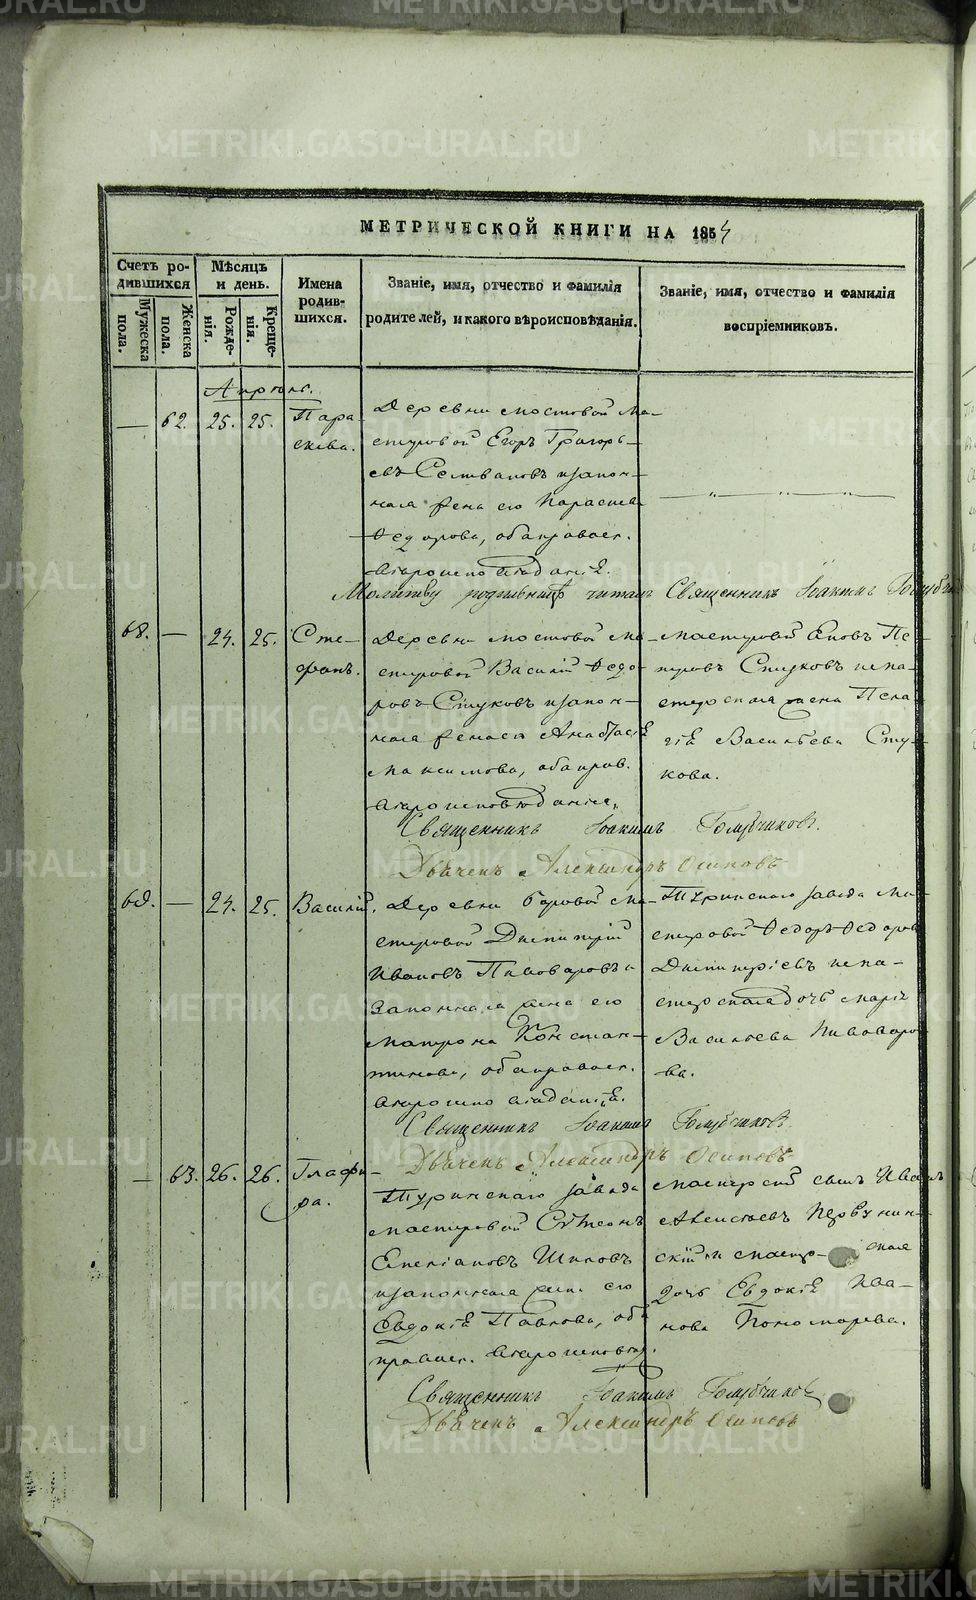 METRIKI.GASO-URAL.RU
МЕТРИЧЕСКОЙ КНИГИ НА 1854
Счетъ ро-
дившихся
Мужеска
пола.
Женска
пола.
Мѣсяцъ
и день.
Рожде-
нія.
Креще-
нія.
Имена
родив-
шихся.
Званіе, имя, отчество и фамилія
родителей, и какого вѣроисповѣданія.
Званіе, имя, отчество и фамилія
воспріемниковъ.
Апрѣль.
— 62. 25. 25. Пара
скева.
Деревни Мостовой ма-
стеровой Егоръ Григорь-
евъ Селивановъ и закон-
ная жена его Параскева
Ѳедорова, оба правосл.
вѣроисповѣданія.
Молитву родильницѣ читалъ Священникъ Іоакимъ Голубчиковъ
68. — 24. 25. Сте-
фанъ.
Деревни Мостовой ма-
стеровой Василій Ѳедо-
ровъ Стуковъ и закон-
ная жена его Анастасія
Максимова, оба прав.
вѣроисповѣданія.
Мастеровой Іаковъ Пе-
тровъ Стуковъ и ма-
стерская жена Пела-
гія Васильева Сту-
кова.
Священникъ Іоакимъ Голубчиковъ.
Дьячекъ Александръ Осиповъ
69. — 24. 25. Василій.
Деревни Боровой ма-
стеровой Димитрій
Ивановъ Пивоваровъ и
законная жена его
Матрона Констан-
тинова, оба правосл.
вѣроисповѣданія.
Туринскаго завода ма-
стеровой Ѳедоръ Ѳедоровъ
Димитріевъ и ма-
стерская дочь Марія
Васильева Пивоваро-
ва.
Священникъ Іоакимъ Голубчиковъ.
Дьячекъ Александръ Осиповъ
— 63. 26. 26. Глафи-
ра.
Туринскаго завода
мастеровой Сѵмеонъ
Емеліановъ Шиловъ
и законная жена его
Евдокія Павлова, оба
правосл. вѣроисповѣд.
Мастерскій сынъ Иванъ
Алексѣевъ Первунин-
скій и мастерская
дочь Евдокія Ива-
нова Пономарева.
Священникъ Іоакимъ Голубчиковъ
Дьячекъ Александръ Осиповъ